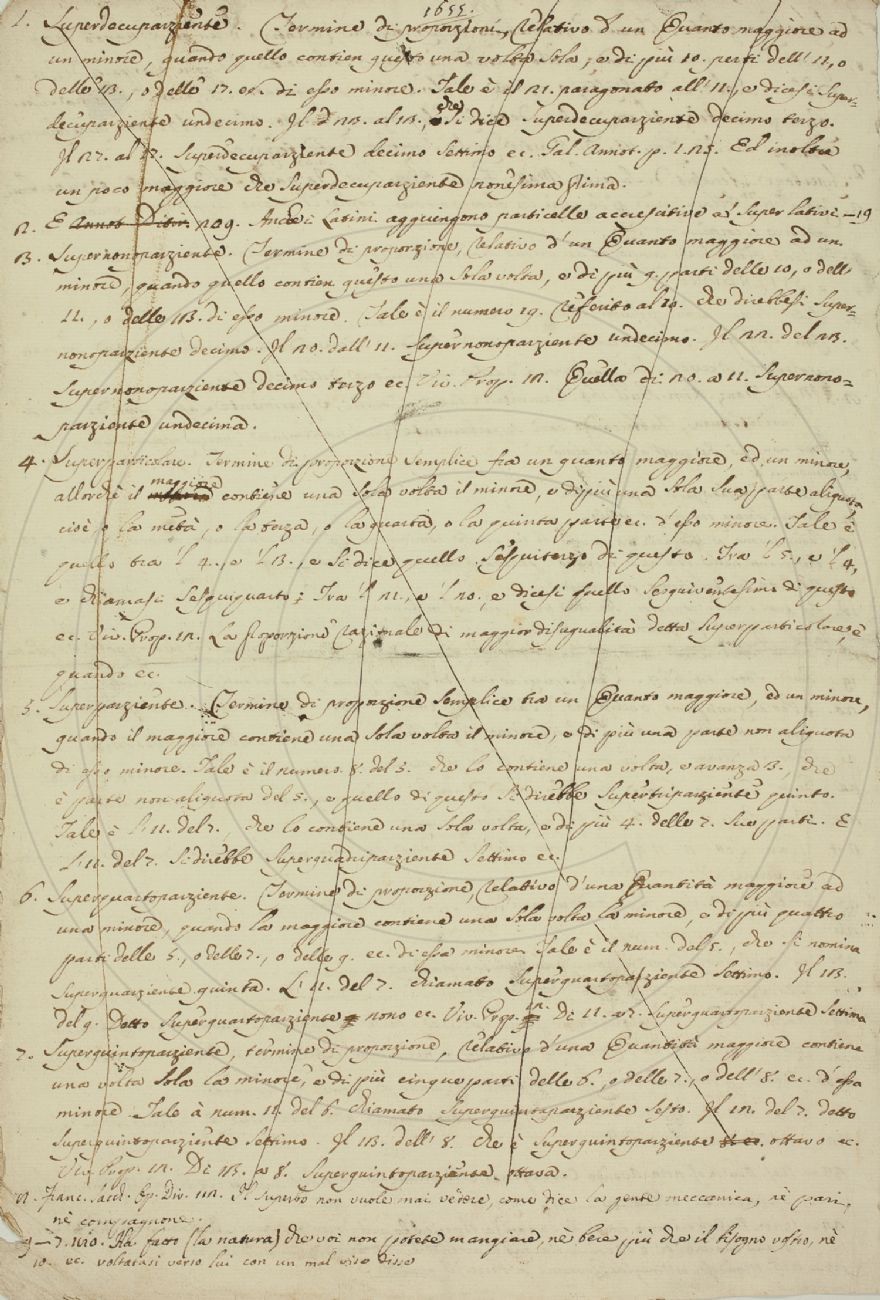 1655.
1. Superdecuparziente. Termine di proporzioni, relativo d'un Quanto maggiore ad
un minore, quando quello contien questo una volta sola, e di più 10. parti dell' 11, o
delle 13., o delle 17. ec. di esso minore. Tale è il 21. paragonato all' 11., e dicesi Super-
decuparziente undecimo. Il 23. al 13., che si dice Superdecuparziente decimo terzo.
Il 27. al 17. Superdecuparziente decimo settimo ec. Gal. Annot. p. 125. Ed inoltre
un poco maggiore che Superdecuparziente
2. E Annot. 209. Anche i Latini aggiungono particelle accrescitive a' Superlativi. —19
3. Supernonoparziente. Termine di proporzione, relativo d'un Quanto maggiore ad un
minore, quando quello contien questo una sola volta, e di più 9. parti delle 10, o dell'
11., o delle 13. di esso minore. Tale è il numero 19. riferito al 10. che direbbesi Super-
nonoparziente decimo. Il 20. dall' 11. Supernonoparziente undecimo. Il 22. del 13.
Supernonoparziente decimo terzo ec. Viv. Prop. 12. Quella di 20. a 11. Supernono=
parziente undecima.
4. Superparticolare. Termine di proporzione semplice fra un quanto maggiore, ed un minore,
allorchè il maggiore contiene una sola volta il minore, e di più una sola sua parte aliquota,
cioè o la metà, o la terza, o la quarta, o la quinta parte ec. d'esso minore. Tale è
quello tra 'l 4., e 'l 3., e si dice quello Sesquiterzo di questo. Tra 'l 5., e 'l 4,
e chiamasi Sesquiquarto; Tra 'l 21., e 'l 20., e dicesi quello Sesquiventesimo di questo
ec. Viv. Prop. 12. La proporzione razionale di maggior disugualità detta Superparticolare, è
quando ec.
5. Superparziente. Termine di proporzione semplice tra un Quanto maggiore, ed un minore,
quando il maggiore contiene una sola volta il minore, e di più una parte non aliquota
di esso minore. Tale è il numero 8. del 5. che lo contiene una volta, e avanza 3., che
è parte non aliquota del 5., e quello di questo si direbbe Supertriparziente quinto.
Tale è l' 11. del 7., che lo contiene una sola volta, e di più 4. delle 7. sue parti. E
l' 11. del 7. si direbbe Superquadriparziente Settimo ec.
6. Superquartoparziente. Termine di proporzione, relativo d'una Quantità maggiore ad
una minore, quando la maggiore contiene una sola volta la minore, e di più quattro
parti delle 5., o delle 7., o delle 9. ec. di essa minore. Tale è il num. del 5., che si nomina
Superquarziente quinta. L' 11. del 7. chiamato Superquartoparziente Settimo. Il 13.
del 9. Detto Superquartoparziente nono ec. Viv. Prop. 12. Di 11. a 7. Superquartoparziente Settima
7. Superquintoparziente, termine di proporzione, relativo d'una Quantità maggiore contiene
una volta sola la minore, e di più cinque parti delle 6., o delle 7., o dell' 8. ec. d'essa
minore. Tale à num. 11. del 6. chiamato Superquintoparziente Sesto. Il 12. del 7. detto
Superquintoparziente Settimo. Il 13. dell' 8. che è Superquintoparziente ottavo ec.
Viv. Prop. 12. Di 13. a 8. Superquintoparziente ottava.
Franc. Sacch. Op. Div. 112. Il Superbo non vuole mai vedere, come dice la gente meccanica, nè pari,
nè compagnone.
9 — 7. 210. Ha fatto (la natura) che voi non potete mangiare, nè bere più che il bisogno vostro, nè
10. ec. voltatasi verso lui con un mal viso disse